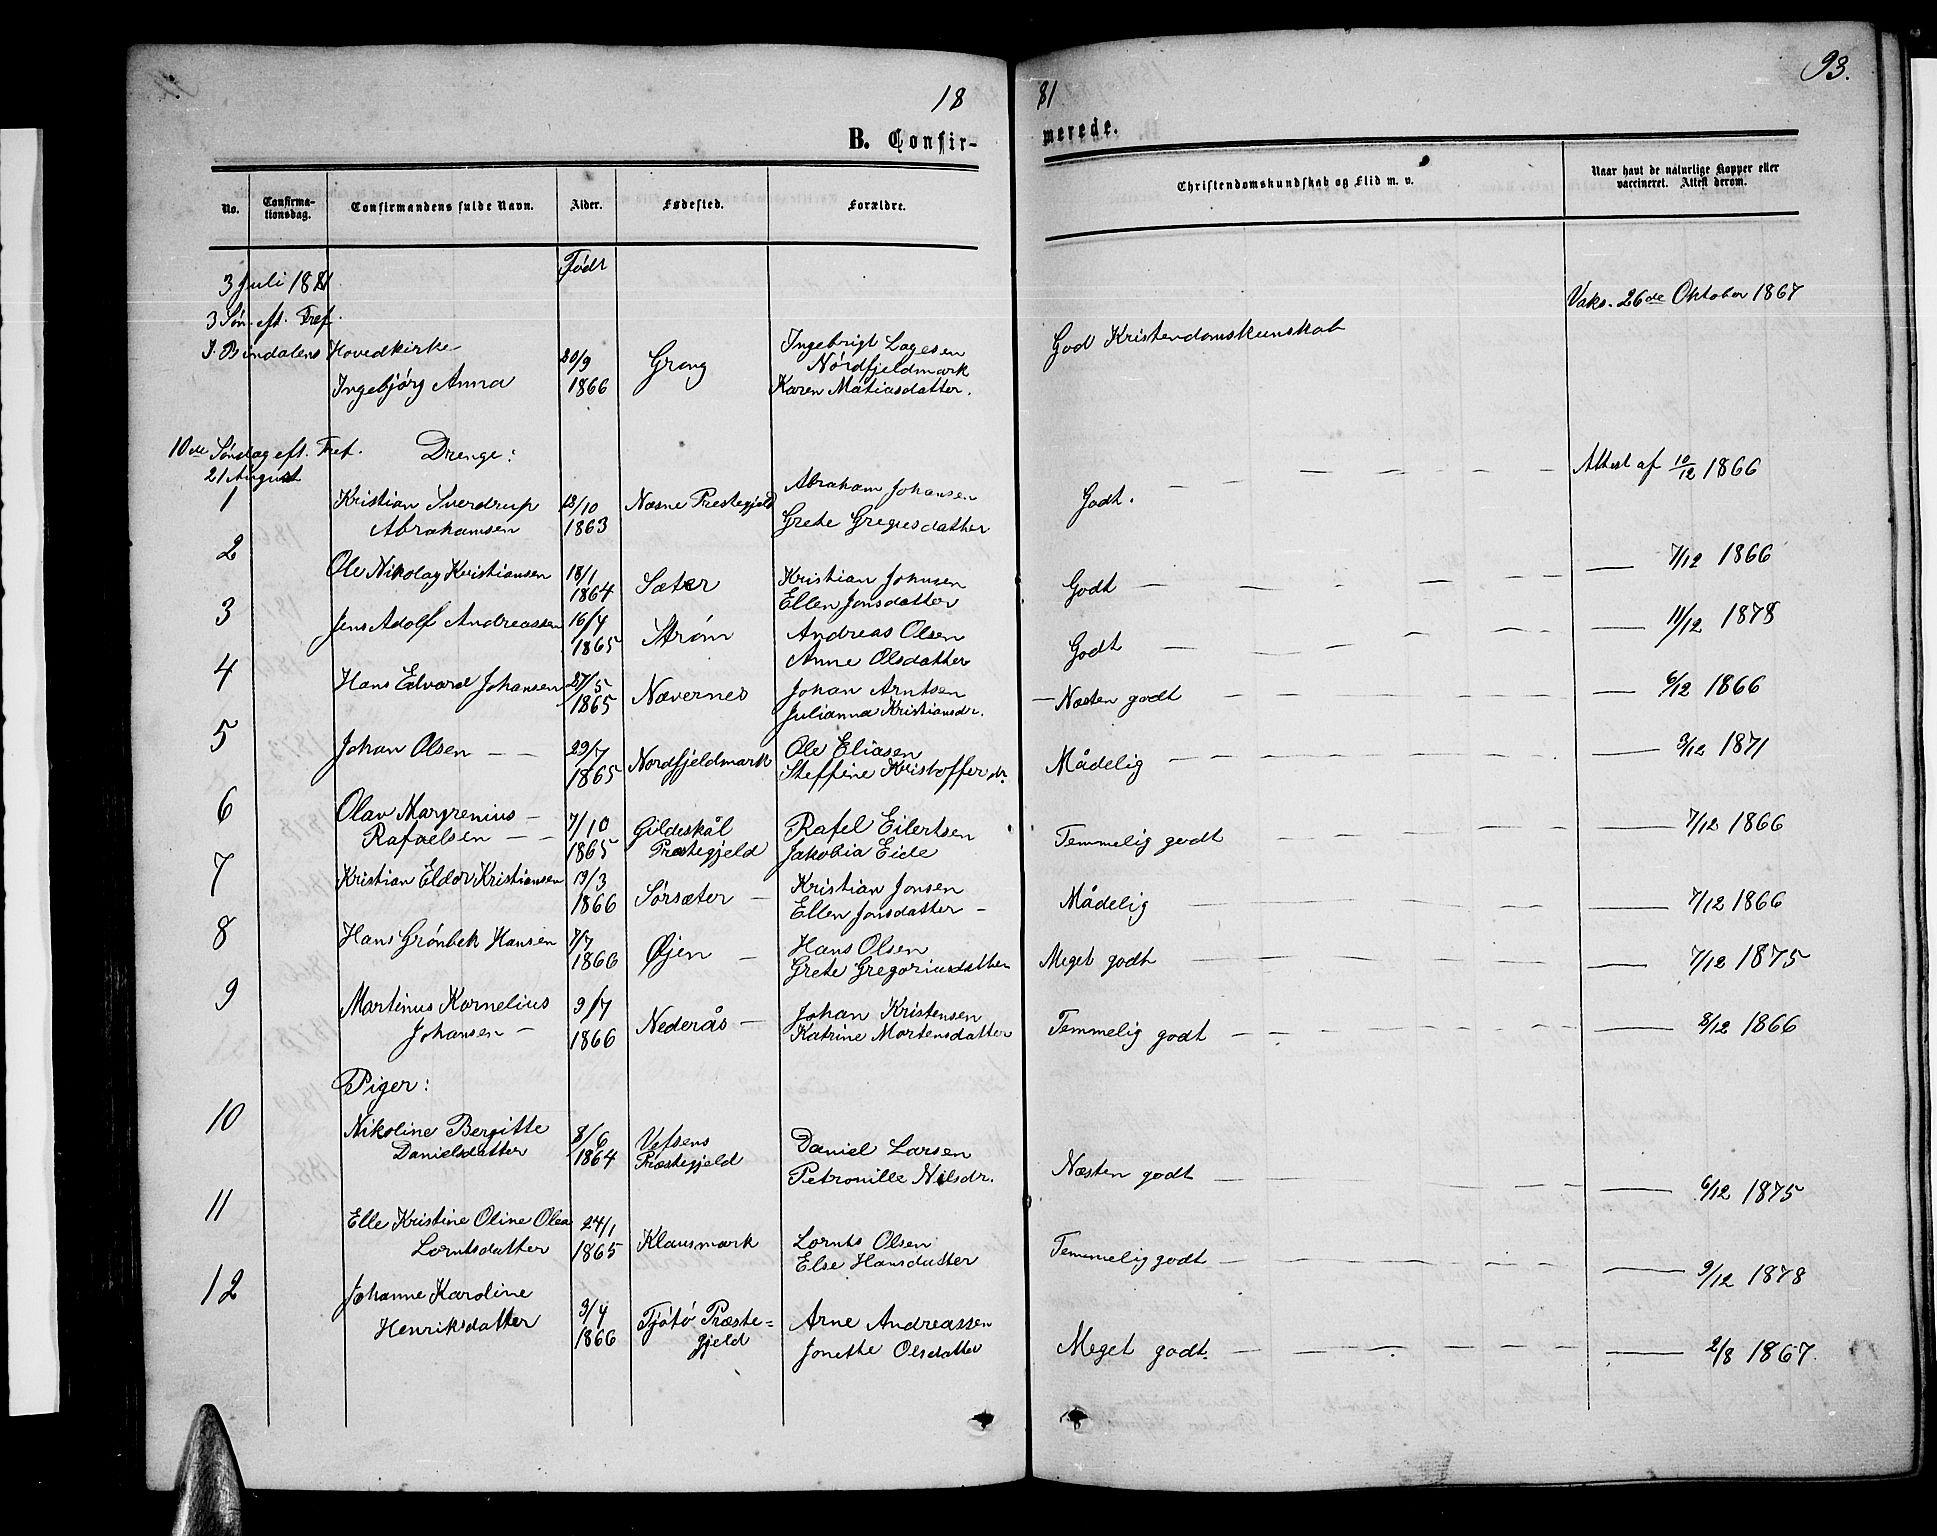 18 81
93.
B. Confir- merede.
No. Confirma-tionsdag. Confirmandens fulde Navn. Alder. Fødested. Forældre. Christendomskundskab og Flid m. v. Naar havt de naturlige Kopper eller vaccineret. Attest derom.
3 Juli 1881 Født
3 Søn. eft. Tref. Vaks. 26de Oktober 1867
I Bindalens Hovedkirke
Ingebjørg Anna 20/9 1866 Grong Ingebrigt Lagesen Nordfjeldmark God Kristendomskunskab
Karen Matiasdatter.
10de Søndag eft. Tref. Drenge:
21 August
1 Kristian Sverdrup Abrahamsen 18/10 1863 Næsne Præstegjeld Abraham Johansen Godt. — — — Attest af 10/12 1866
Grete Gregusdatter
2 Ole Nikolay Kristiansen 18/1 1864 Sæter Kristian Johnsen Godt — — — 7/12 1866
Ellen Jonsdatter
3 Jens Adolf Andreassen 16/7 1865 Strøm Andreas Olsen Godt — — — 11/12 1878
Anne Olsdatter
4 Hans Edvard Johansen 27/5 1865 Nævernes Johan Arntsen — Næsten godt — — — 6/12 1866
Julianna Kristiansdr.
5 Johan Olsen — — 29/7 1865 Nordfjeldmark Ole Eliasen Mådelig — — — 3/12 1871
Steffine Kristofferdr.
6 Olav Margrenius — Rafaelsen — — 7/10 1865 Gildeskål Præstegjeld Rafel Eilertsen Temmelig godt — — — 7/12 1866
Jakobia Eide
7 Kristian Eldor Kristiansen 19/3 1866 Sørsæter — Kristian Jonsen Mådelig — — — 7/12 1866
Ellen Jonsdatter —
8 Hans Grønbek Hansen 7/7 1866 Øjen — Hans Olsen Meget godt — — — 7/12 1875
Grete Gregoriusdatter
9 Martinus Kornelius Johansen — 9/7 1866 Nederås — Johan Kristensen Temmelig godt — — — 8/12 1866
Katrine Mortensdatter
Piger:
10 Nikoline Bergitte Danielsdatter 8/6 1864 Vefsens Præstegjeld Daniel Larsen Næsten godt — — — 6/12 1875
Petronille Nilsdr.
11 Elle Kristine Oline Olea Lorntsdatter 24/1 1865 Klausmark Lornts Olsen Temmelig godt — — — 9/12 1878
Else Hansdatter
12 Johanne Karoline Henriksdatter 9/4 1866 Tjøtø Præste=gjeld Arne Andreassen Meget godt. — — — 2/8 1867.
Jonette Olsdatter